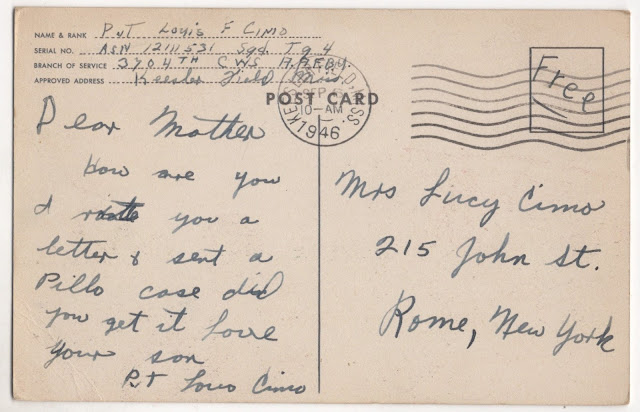 NAME & RANK Pvt Louis F Cimo
SERIAL NO. ASN 12111531 Sqd. T g 4
BRANCH OF SERVICE 3704TH
APPROVED ADDRESS Keesler Field Miss.
POST CARD
KEES D, MISS.
SEP
10-AM
1946
Free
Dear Mother
How are you
I you a
letter & sent a
Pillo case did
you get it Love
Your son
Pvt Louis Cimo
Mrs Lucy Cimo
215 John St.
Rome, New York